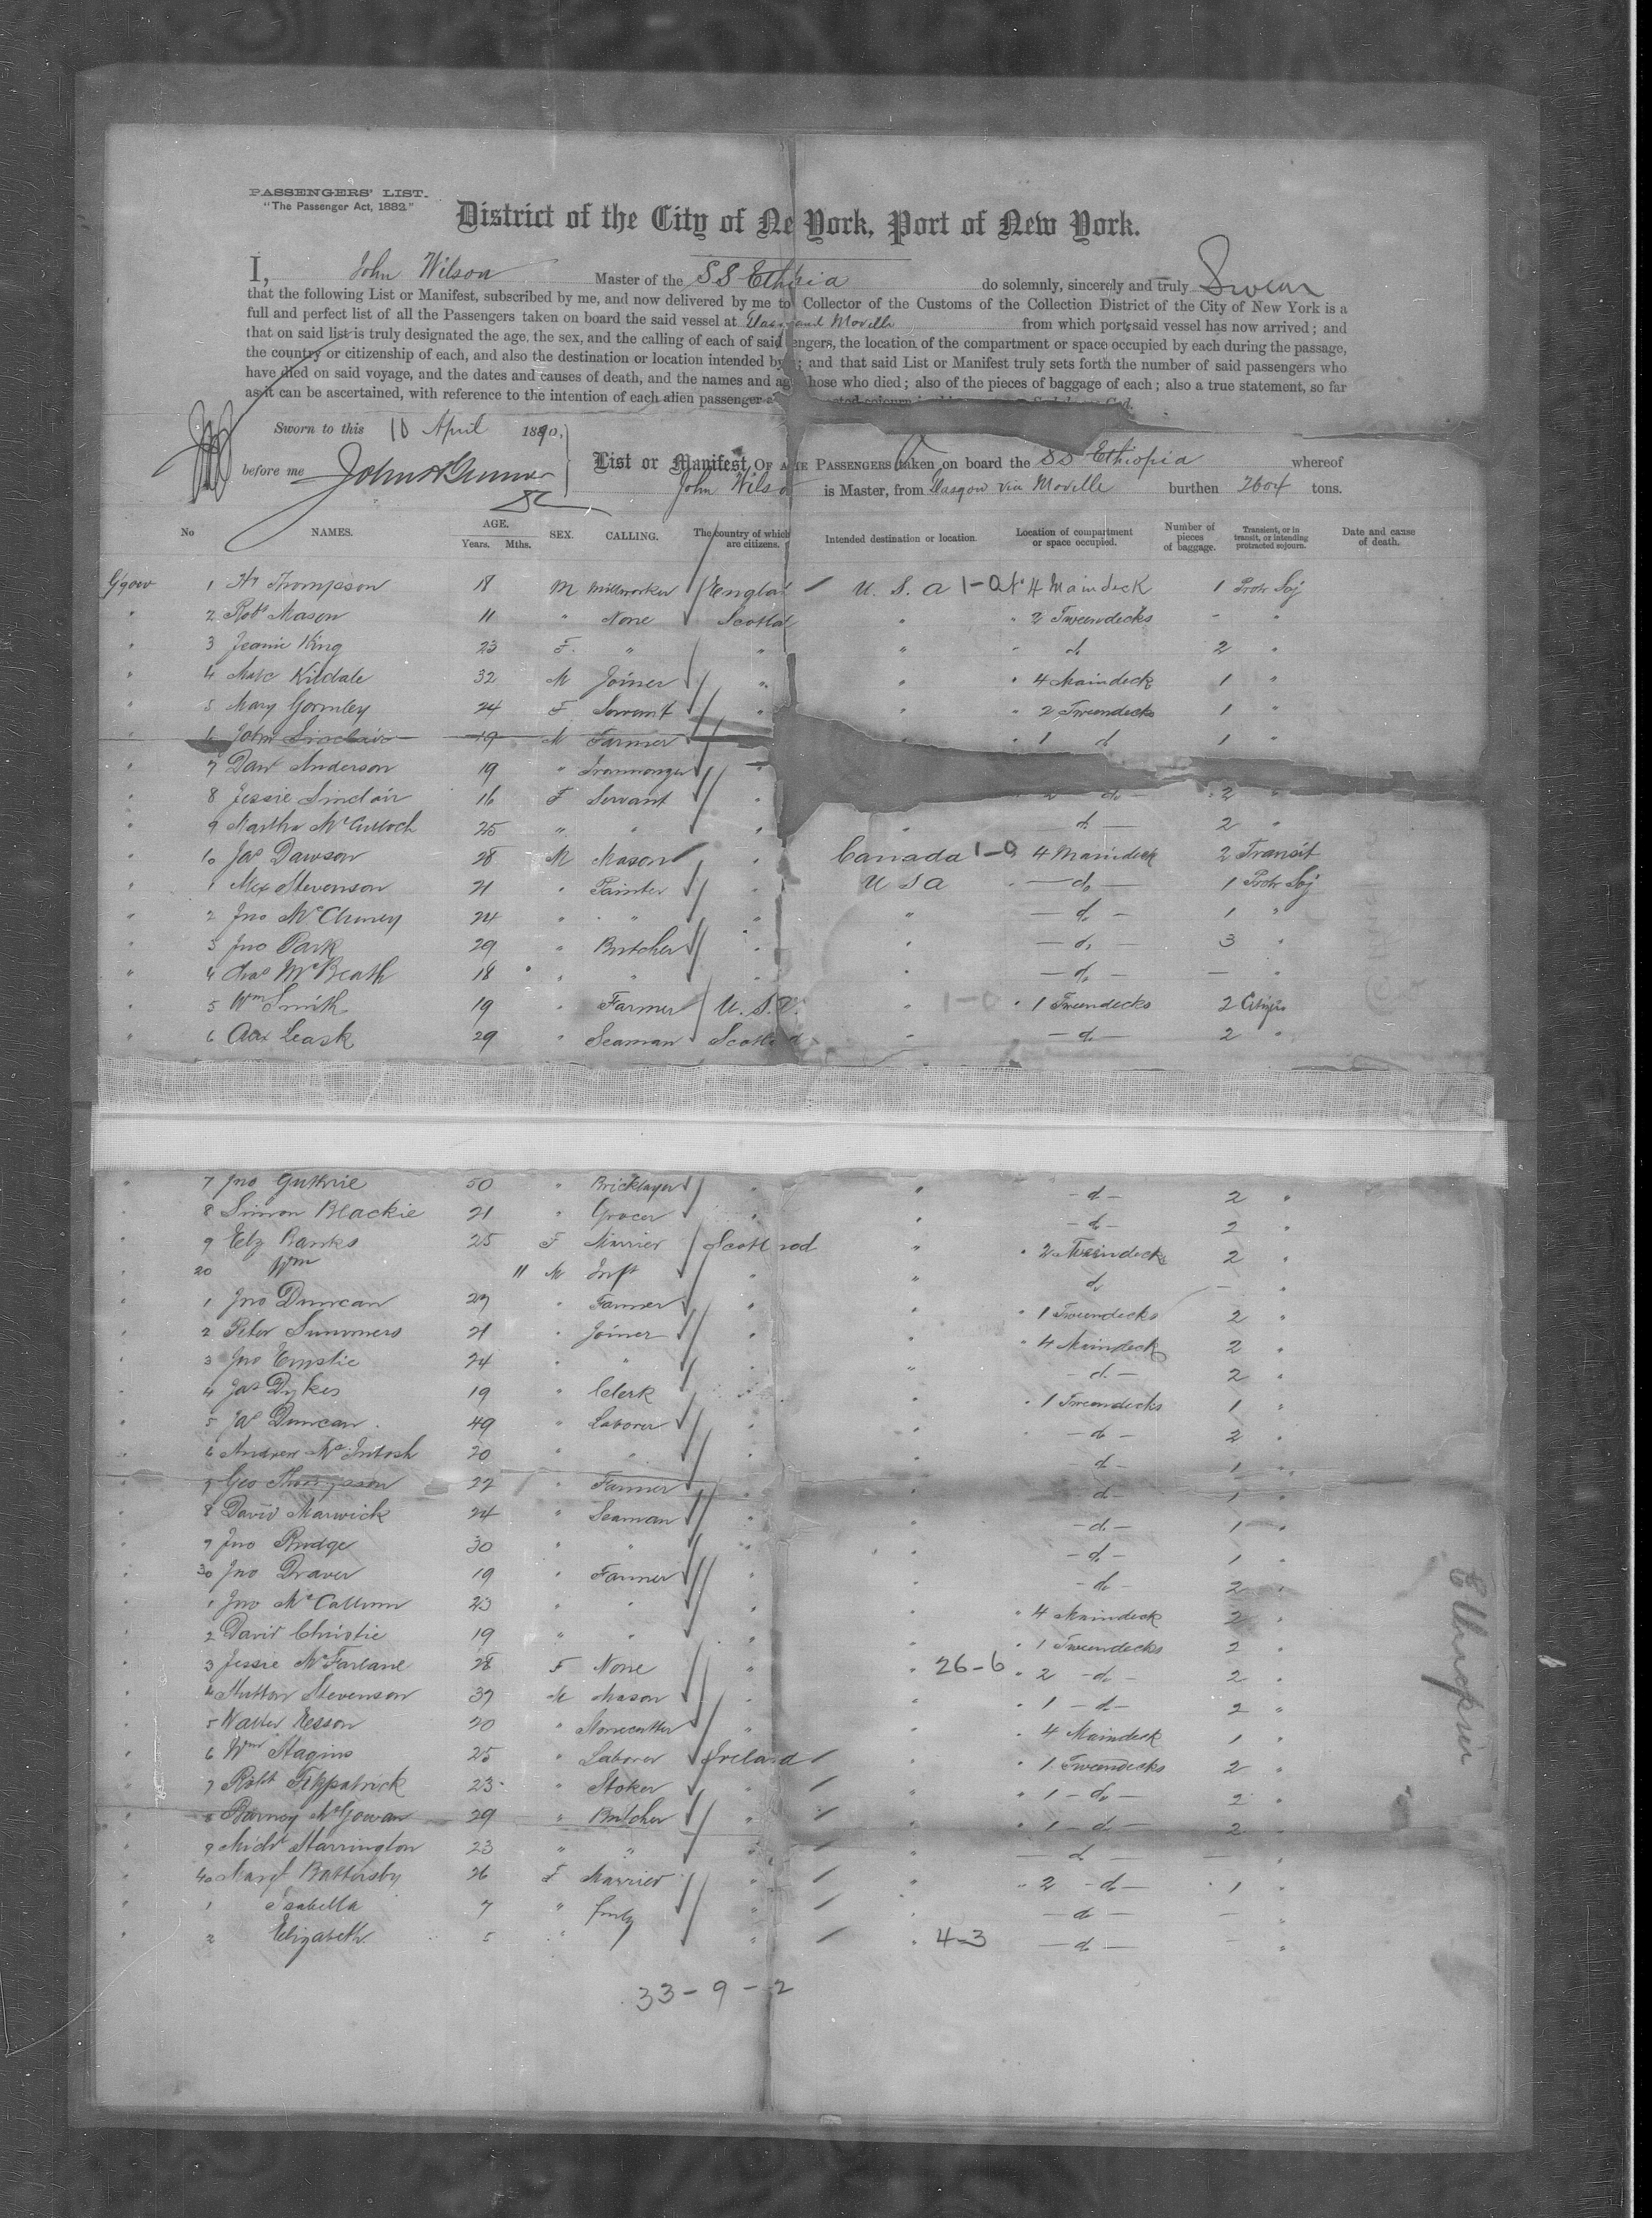 PASSENGERS' LIST.
"The Passenger Act, 1882"
District of the City of Ne York, Port of New York.
I, John Wilson Master of the SS Ethiopia do solemnly, sincerely and truly Swear
that the following List or Manifest, subscribed by me, and now delivered by me to Collector of the Customs of the Collection District of the City of New York is a
full and perfect list of all the Passengers taken on board the said vessel at and Moville from which ports said vessel has now arrived; and
that on said list is truly designated the age, the sex, and the calling of each of said engers, the location of the compartment or space occupied by each during the passage,
the country or citizenship of each, and also the destination or location intended by ; and that said List or Manifest truly sets forth the number of said passengers who
have died on said voyage, and the dates and causes of death, and the names and ag hose who died; also of the pieces of baggage of each; also a true statement, so far
as it can be ascertained, with reference to the intention of each alien passenger God.
Sworn to this 10 April 1890,
before me
List or Manifest, OF A HE PASSENGERS taken on board the SS Ethiopia whereof
John Wilso is Master, from Glasgow via Moville burthen 2604 tons.
No NAMES. AGE. Years. Mths. SEX. CALLING. The country of which are citizens. Intended destination or location. Location of compartment or space occupied. Number of pieces of baggage. Transient, or in transit, or intending protracted sojourn. Date and cause of death.
G'gow 1 Hy Thompson 18 M Millworker England U. S. A 1-0 No 4 Maindeck 1 Protr Soj
" 2 Robt Mason 11 " None Scotland " " 2 Tweendecks - "
" 3 Jeanie King 23 F. " " " " do 2 "
" 4 Kildale 32 M Joiner " " " 4 Maindeck 1 "
" 5 Mary Gormley 24 F Servant " " " 2 Tweendecks 1 "
" 6 John Sinclair 19 M Farmer " 1 d 1 "
" 7 Davd Anderson 19 " Ironmonger "
" 8 Jessie Sinclair 16 F Servant " 2 do 2 "
" 9 Martha McCulloch 25 " " " " do 2 "
" 10 Jas Dawson 28 M Mason " Canada 1-0 4 Maindeck 2 Transit
" 1 Alex Stevenson 21 " Painter " U S A " do 1 Protr Soj
" 2 Jno McCluney 24 " " " " do 1 "
" 3 Jno Park 29 " Butcher " " do 3 "
" 4 Chas McBeath 18 " " " " do - "
" 5 Wm Smith 19 " Farmer U. S. " 1-0 " 1 Tweendecks 2 Citizen
" 6 Alex Leask 29 " Seaman Scotland " do 2 "
" 7 Jno Guthrie 50 " Bricklayer " " do 2 "
" 8 Simon Blackie 21 " Grocer " " do 2 "
" 9 Elz Banks 25 F Married Scotland " " 2 Tweendecks 2 "
" 20 Wm 11 M Inft " " do - "
" 1 Jno Duncan 27 " Farmer " " " 1 Tweendecks 2 "
" 2 Peter Summers 21 " Joiner " " " 4 Maindeck 2 "
" 3 Jno Emslie 24 " " " " do 2 "
" 4 Jas Dykes 19 " Clerk " " " 1 Tweendecks 1 "
" 5 Jas Duncan 49 " Laborer " " do 2 "
" 6 Andrew McIntosh 20 " " " " do 1 "
" 7 Geo Thompson 22 " Farmer " " do 1 "
" 8 David Marwick 24 " Seaman " " do 1 "
" 9 Jno Rudge 30 " " " " do 1 "
" 30 Jno Draver 19 " Farmer " " do 2 "
" 1 Jno McCallum 23 " " " " " 4 Maindeck 2 "
" 2 David Christie 19 " " " " " 1 Tweendecks 2 "
" 3 Jessie McFarlane 28 F None " " 26-6 " 2 do 2 "
" 4 Hutton Stevenson 37 M Mason " " " 1 do 2 "
" 5 Walter Esson 20 " Stonecutter " " " 4 Maindeck 1 "
" 6 Wm Hagins 25 " Laborer Ireland " " 1 Tweendecks 2 "
" 7 Robt Fitzpatrick 23 " Stoker " " " 1 do 2 "
" 8 Barney McGowan 29 " Butcher " " " 1 do 2 "
" 9 Michl Harrington 23 " " " " do - "
" 40 Margt Battersby 26 F Married " " " 2 do 1 "
" 1 Isabella 7 " fmly " " do - "
" 2 Elizabeth 5 " " " 4-3 do - "
33-9-2
Ethiopia